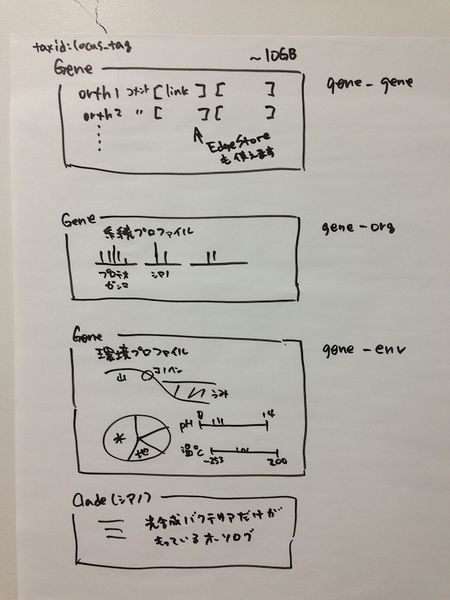 taxid:locus_tag
Gene ~10GB
orth1 コメント [link ] [ ]
orth2 〃 [ ] [ ]
EdgeStore
も使えます
gene-gene
Gene
系統プロファイル
プロテオ シアノ
gene-org
Gene
環境プロファイル
山
うみ
pH 0 14
* 地
温℃ -253 200
gene-env
Clade(シアノ)
光合成バクテリアだけが
もっているオーソログ